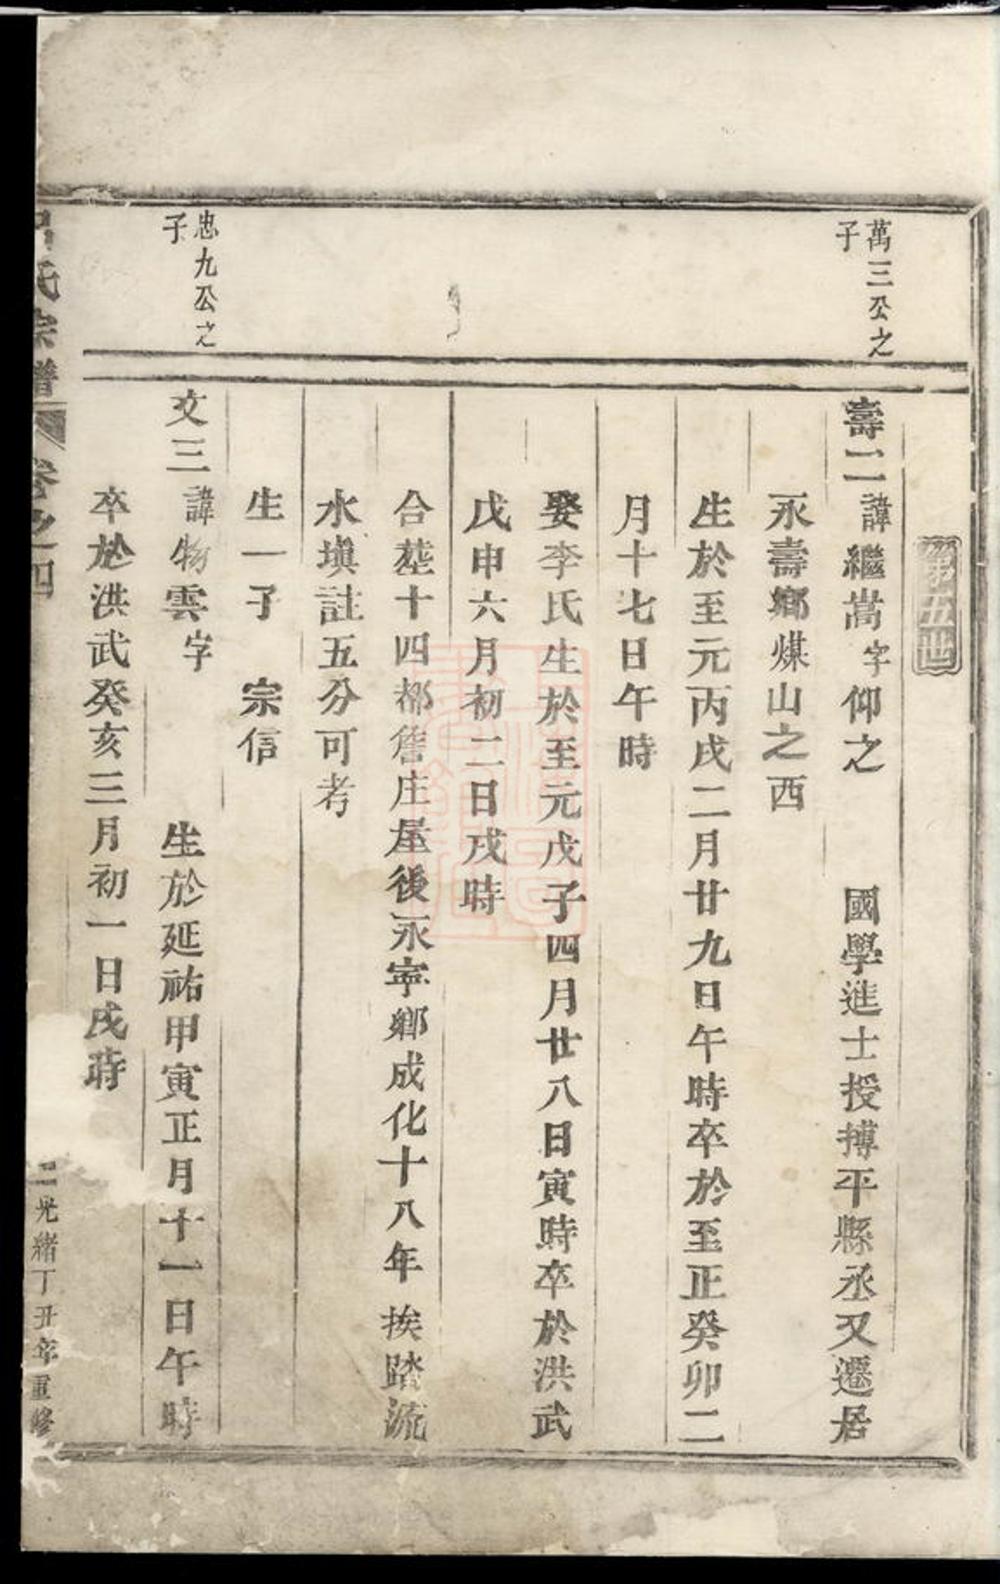 第五世
萬三公之
子
壽二諱繼嵩字仰之 國學進士授搏平縣丞又遷居
永壽鄉煤山之西
生於至元丙戌二月廿九日午時卒於至正癸卯二
月十七日午時
娶李氏生於至元戊子四月廿八日寅時卒於洪武
戊申六月初二日戌時
合塟十四都詹庄屋後永寧鄉成化十八年挨踏流
水塡註五分可考
生一子 宗信
忠九公之
子
文三諱物雲字 生於延祐甲寅正月十一日午時
卒於洪武癸亥三月初一日戌時
氏宗譜 卷之四 二 光緒丁丑年重修